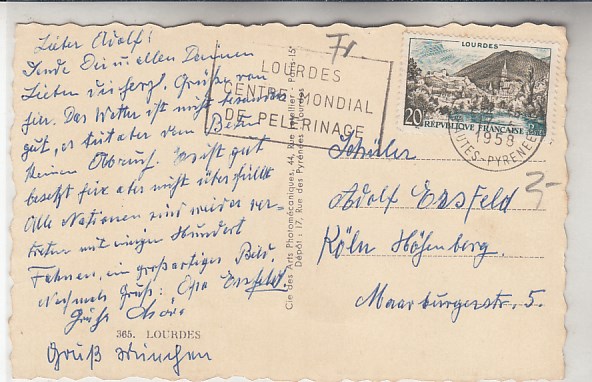 Lieter Adolf!
Sende Dir u. allen Deinen
Lieben die herzl. Grüße von
hier. Das Wetter ist nicht besonders
gut, es tut aber dem Besuch
keinen Abbruch. Es ist gut
besetzt hier aber nicht überfüllt
Alle Nationen sind wieder ver-
treten mit einigen Hundert
Fahnen, ein großartiges Bild.
Nochmals Gruß: Opa Ersfeld
Grüße
365. LOURDES
Gruß München
Fr
LOURDES
CENTRE MONDIAL
DE PELERINAGE
LOURDES
20F
REPUBLIQUE FRANÇAISE
1958
HAUTES-PYRENEES
Cie des Arts Photomécaniques, 44, Rue Letellier - Paris 15e
Dépôt : 17, Rue des Pyrénées - Lourdes
Schüler
Adolf Ersfeld
Köln Höhenberg.
Maarburgerstr. 5.